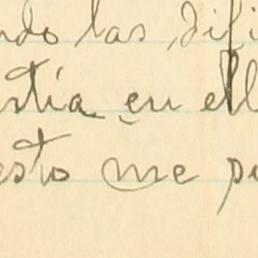 ndo las difi
stía en ell
esto me pu